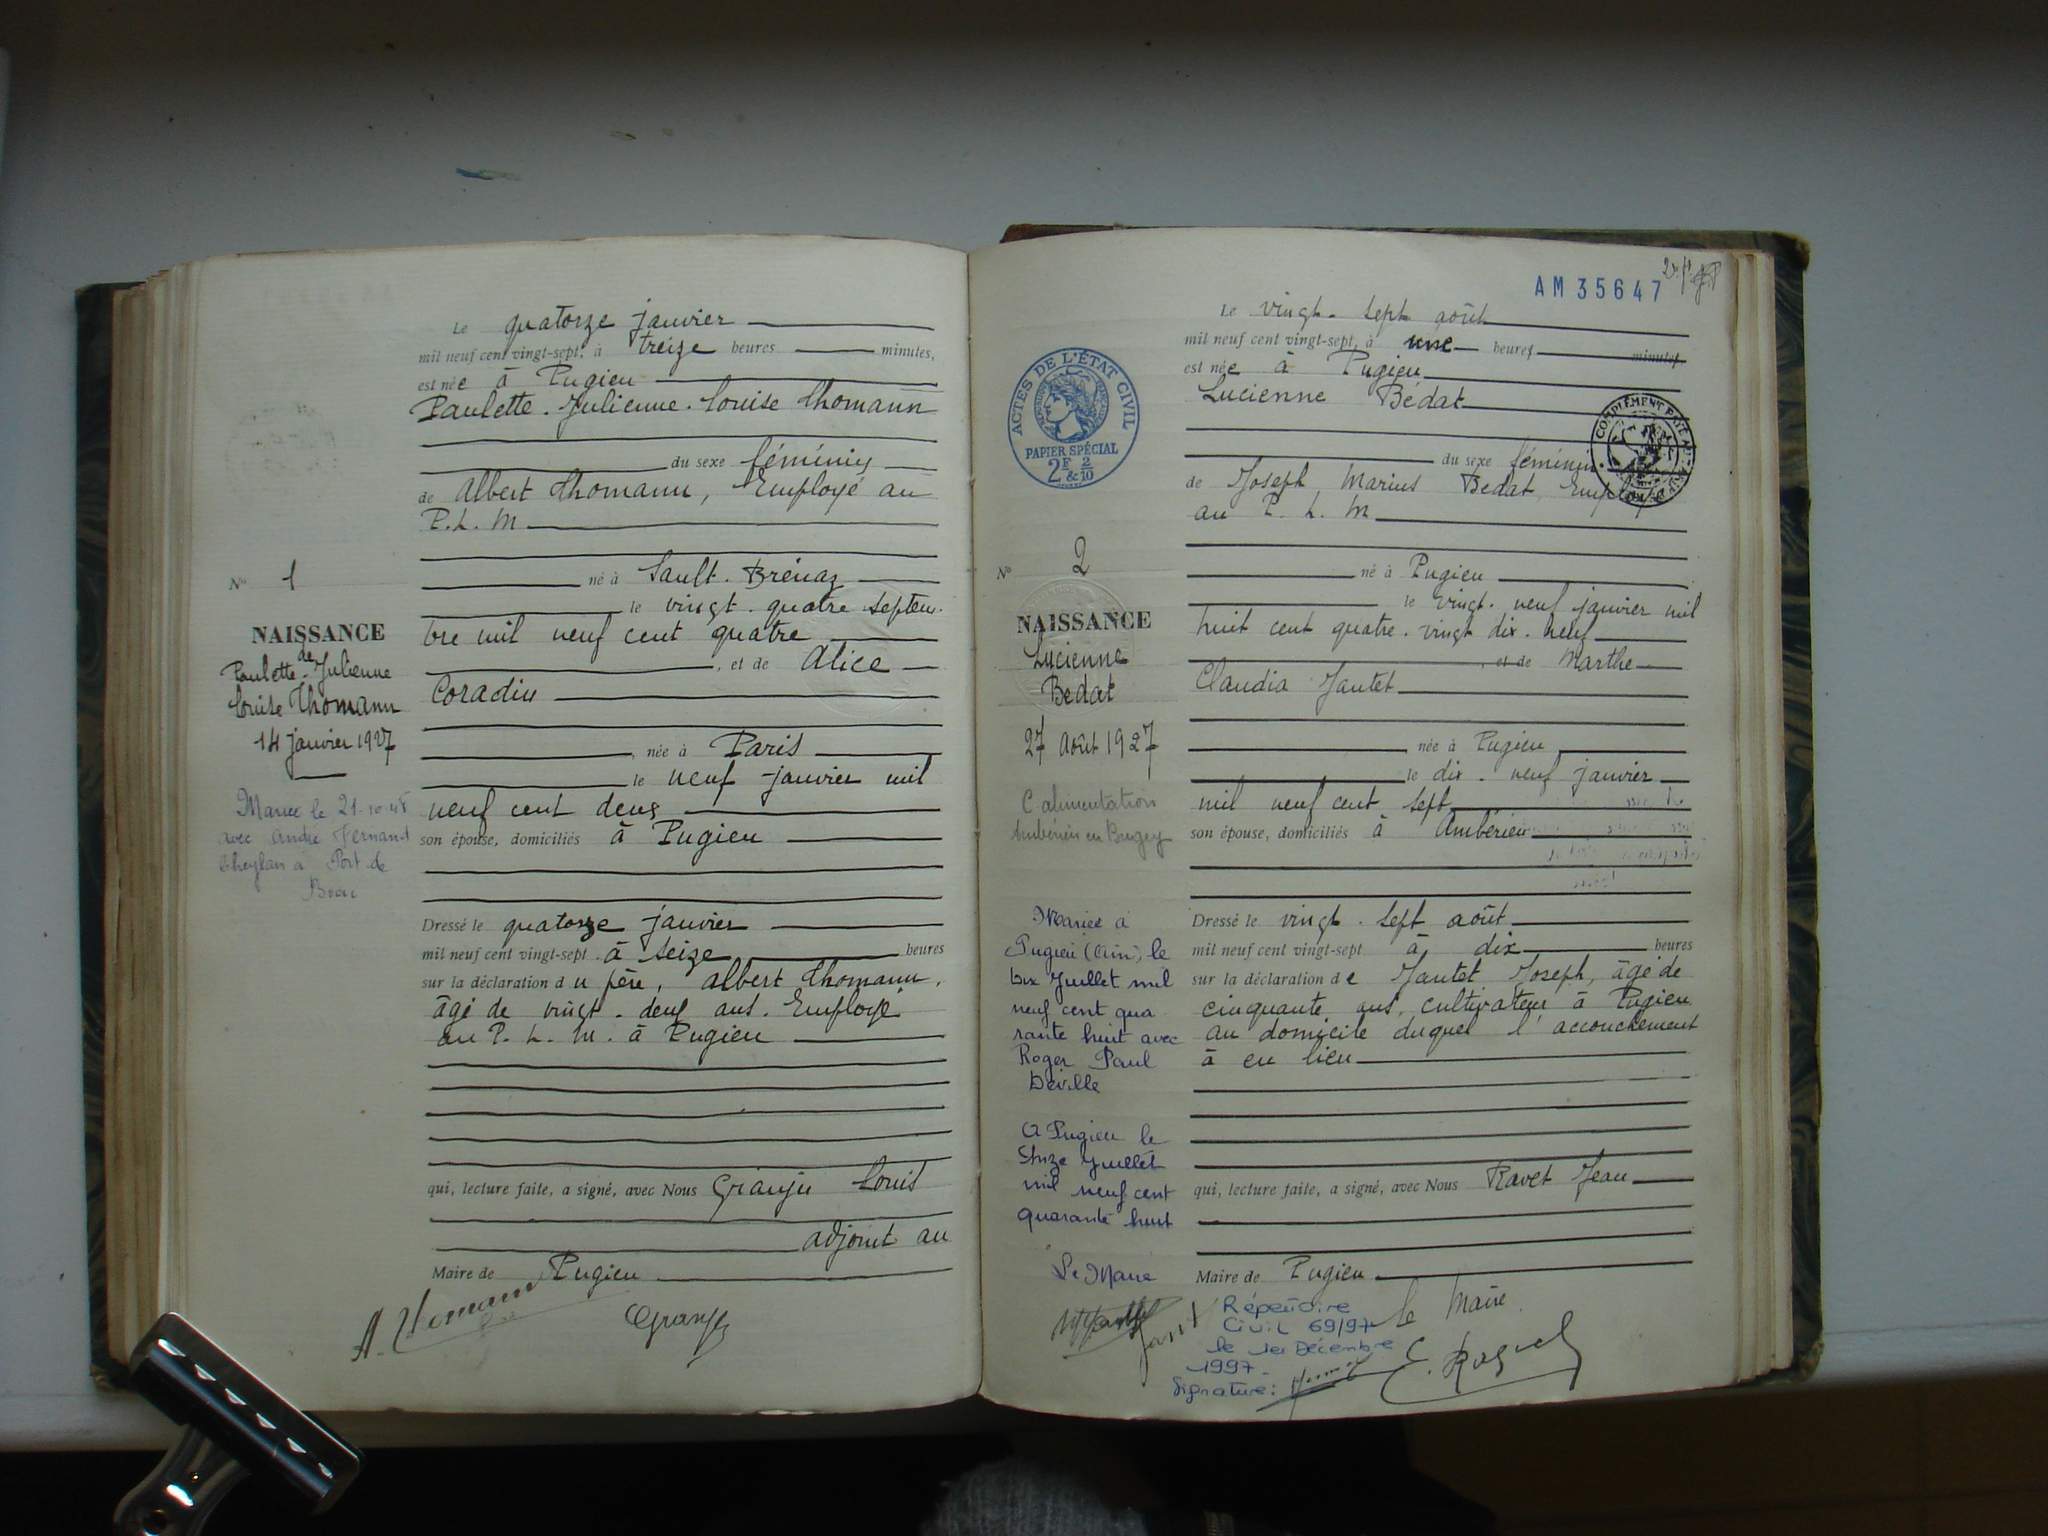 Le quatorze janvier
mil neuf cent vingt-sept, à treize heures minutes,
est née à Pugieu
Paulette. Julienne. Louise Thomann
du sexe féminin
de Albert Thomann, Employé au
P. L. M
né à Sault. Brénaz
le vingt. quatre septem-
bre mil neuf cent quatre
, et de Alice
Coradin
, née à Paris
le neuf janvier mil
neuf cent deux
son épouse, domiciliés à Pugieu
Dressé le quatorze janvier
mil neuf cent vingt-sept à seize heures
sur la déclaration du père, Albert Thomann,
âgé de vingt. deux ans. Employé
au P. L. M. à Pugieu
qui, lecture faite, a signé, avec Nous Granju Louis
adjoint au
Maire de Pugieu
A. Thomann
No 1
NAISSANCE
de
Paulette. Julienne
Louise Thomann
14 janvier 1927
Mariée le 21-10-
avec André Fernand
à Port de
Bouc
AM 35647
ACTES DE L'ÉTAT CIVIL
PAPIER SPÉCIAL
2F & 2/10
COMPLÉMENT
Le vingt. sept août
mil neuf cent vingt-sept, à une heures minutes
est née à Pugieu
Lucienne Bédat
du sexe féminin.
de Joseph Marius Bédat, Employé
au P. L. M
né à Pugieu
le vingt. neuf janvier mil
huit cent quatre. vingt dix. neuf
, et de Marthe
Claudia Jantet
née à Pugieu
le dix. neuf janvier
mil neuf cent sept
son épouse, domiciliés à Ambérieu
Dressé le vingt. sept août
mil neuf cent vingt-sept à dix heures
sur la déclaration de Jantet Joseph, âgé de
cinquante ans, cultivateur à Pugieu
au domicile duquel l'accouchement
à eu lieu
qui, lecture faite, a signé, avec Nous Ravet Jean
Maire de Pugieu
Le Maire
No 2
NAISSANCE
Lucienne
Bédat
27 Août 1927
C alimentation
Ambérieu en Bugey
Mariée à
Pugieu (Ain) le
dix Juillet mil
neuf cent qua
rante huit avec
Roger Paul
Deville
A Pugieu le
Juillet
mil neuf cent
quarante huit
Le Maire
Répertoire
Civil 69/97
le 1er Décembre
1997.
Signature: